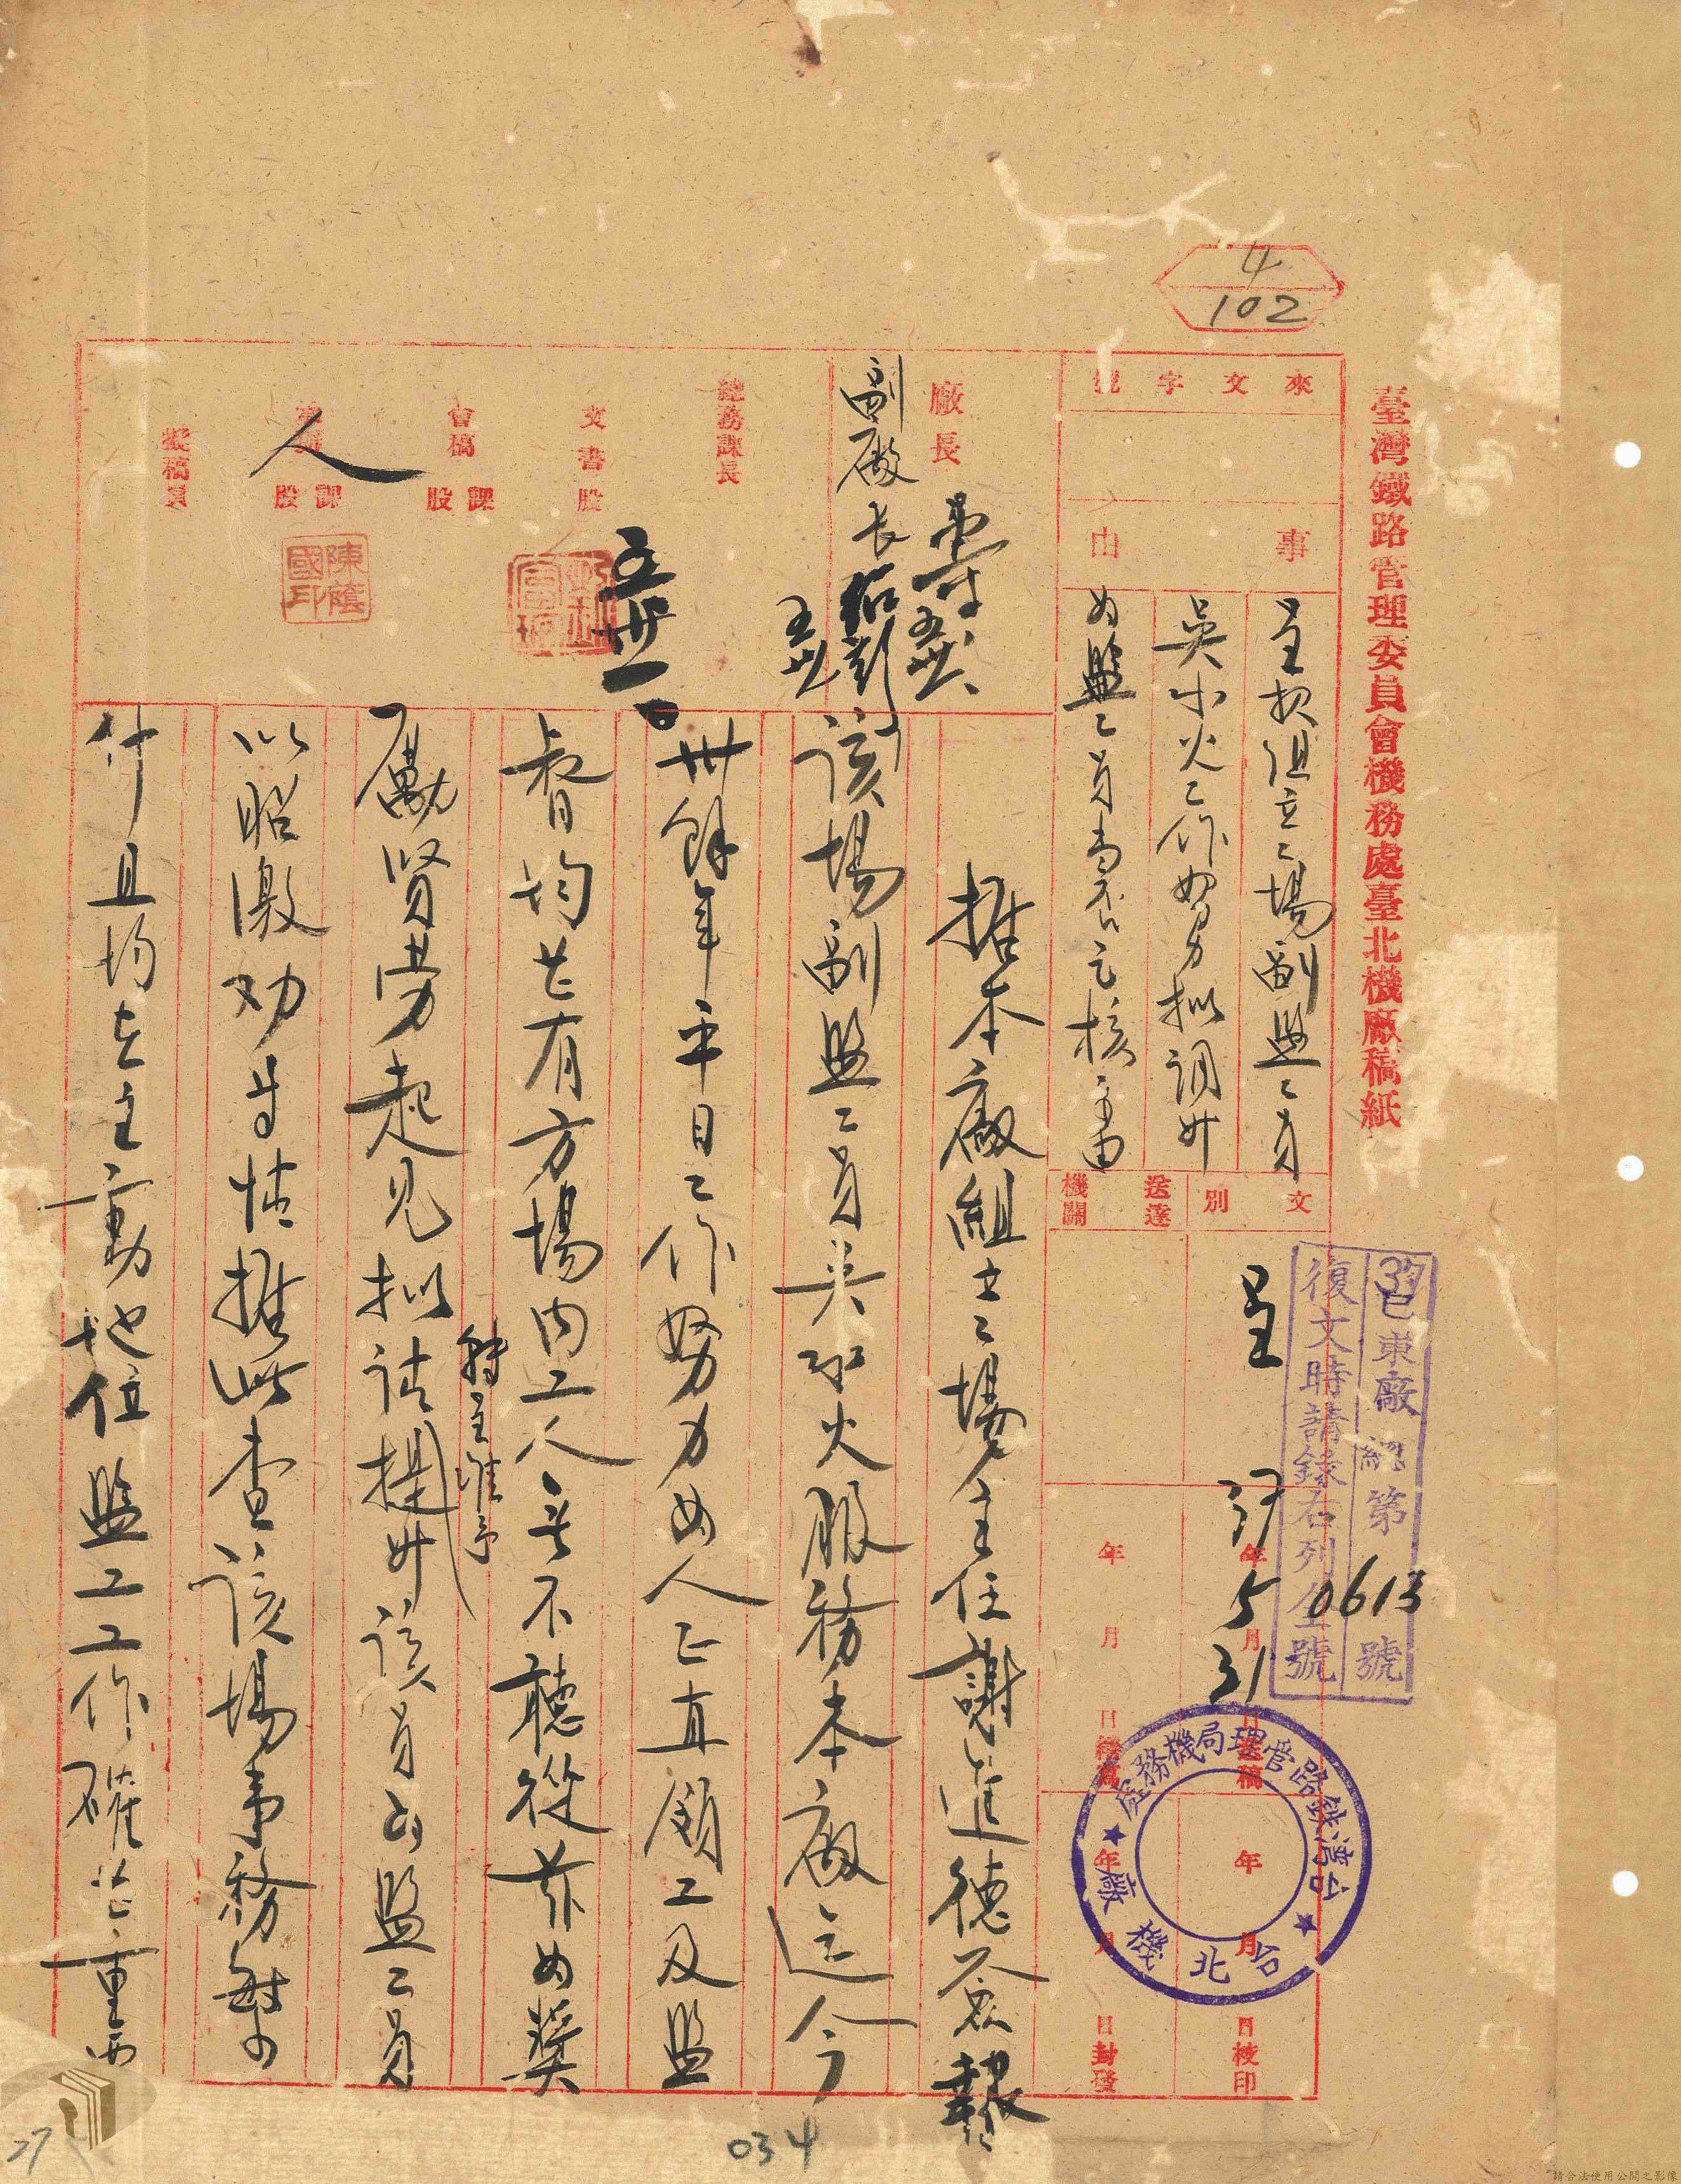 4
102
臺灣鐵路管理委員會機務處臺北機廠稿紙
來文字號
事由
呈報組立工場副監工員
吳水火工作努力擬調升
為監工員當否乞核示由
文別
呈
送達機關
37巳東廠總第0613號
復文時請錄右列全號
37年5月31日擬稿
年月日繕寫
年月日校印
年月日封發
台灣鉄路管理局機務處
台北機廠
廠長
副廠長
總務課長
文書股
會稿課股
課股
人
擬稿員
陳蔭國印
據本廠組立工場主任謝進德簽報
該場副監工員吳水火服務本廠迄今
卅餘年平日工作努力為人正直領工及監
督均甚有方場内工人無不聽從茲為獎
勵賢勞起見擬請提升該員為監工員
特呈准予
以昭激劝等情據此查該場事務較
什且均支主動地位監工工作確甚重要
034
27
請合法使用公開之影像